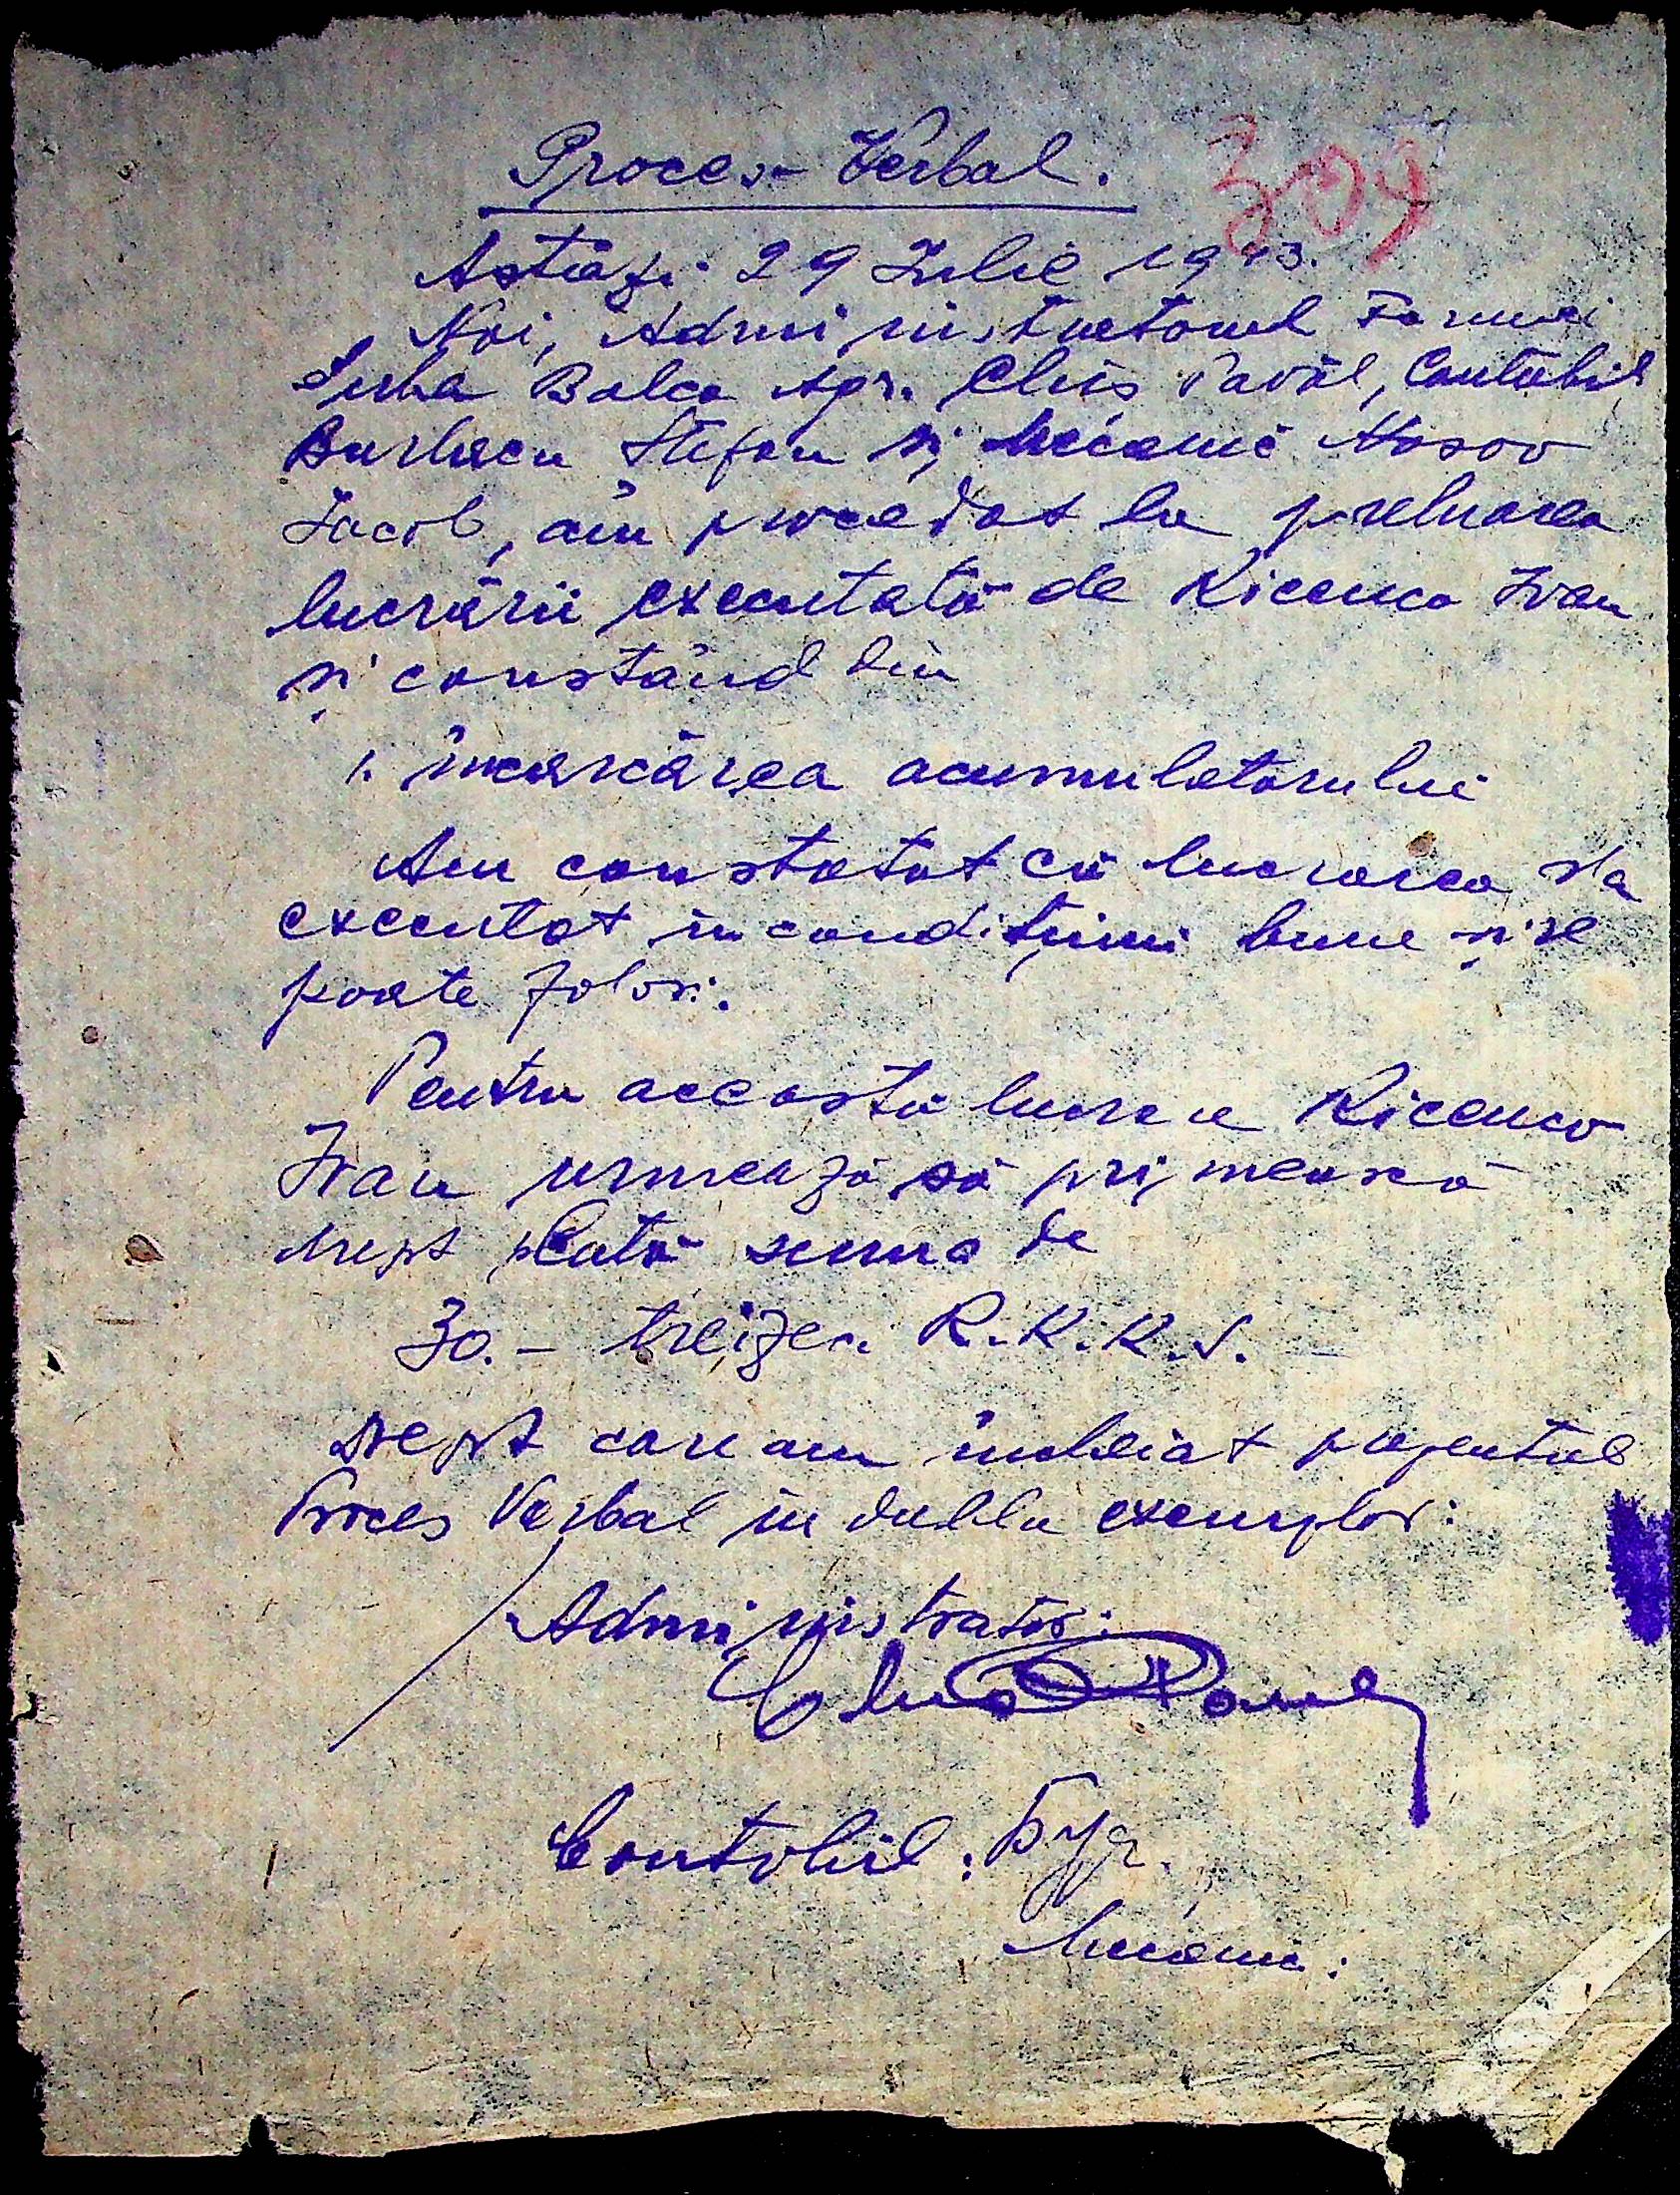 Proces-Verbal.
309
Astăzi 29 Iulie 1943.
Noi, Administratorul Fermei
Serba Balca Agr. Chis Pavel, Contabil
Burlacu Ștefan și Mecanic Nosov
Iacob, am procedat la preluarea
lucrării executată de Kicenco Ivan
și constând din
1. încarcărea acumulatorului
Am constatat că lucrarea s'a
executat in condițiuni bune și se
poate folosi.
Pentru aceasta lucrare Kicenco
Ivan urmează să primească
drept plată suma de
30.- treizeci R.K.K.S. -
drept care am încheiat prezentul
Proces Verbal in dublu exemplar:
Administrator:
Chis Pavel
Contabil:
Mecanic: